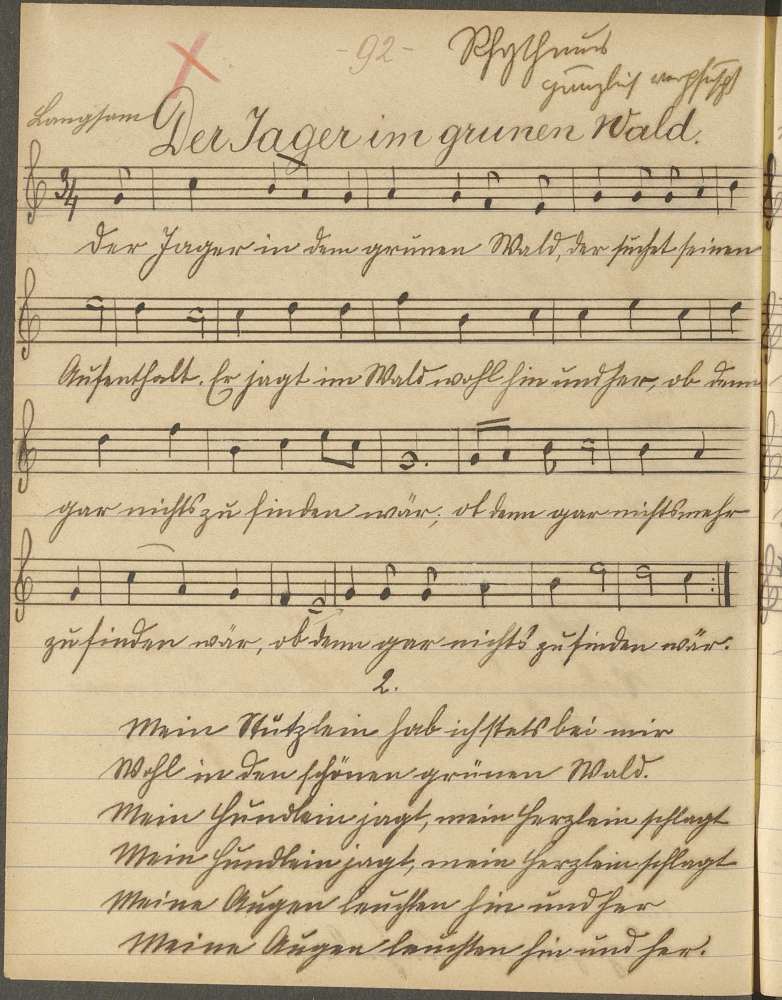 - 92 -
Rhythmus
gänzlich verpfuscht
Langsam
Der Jager im grunen Wald.
3/4
Der Jager in dem grunen Wald, der suchet seinen
Aufenthalt. Er jagt im Wald wohl hin und her, ob denn
gar nichts zu finden wär; ob denn gar nichts mehr
zu finden wär, ob denn gar nichts zu finden wär.
2.
Mein Stutzlein hab ich stets bei mir
Wohl in den schönen grünen Wald.
Mein Hundlein jagt, mein Herzlein schlagt
Mein Hundlein jagt, mein Herzlein schlagt
Meine Augen leuchten hin und her
Meine Augen leuchten hin und her.